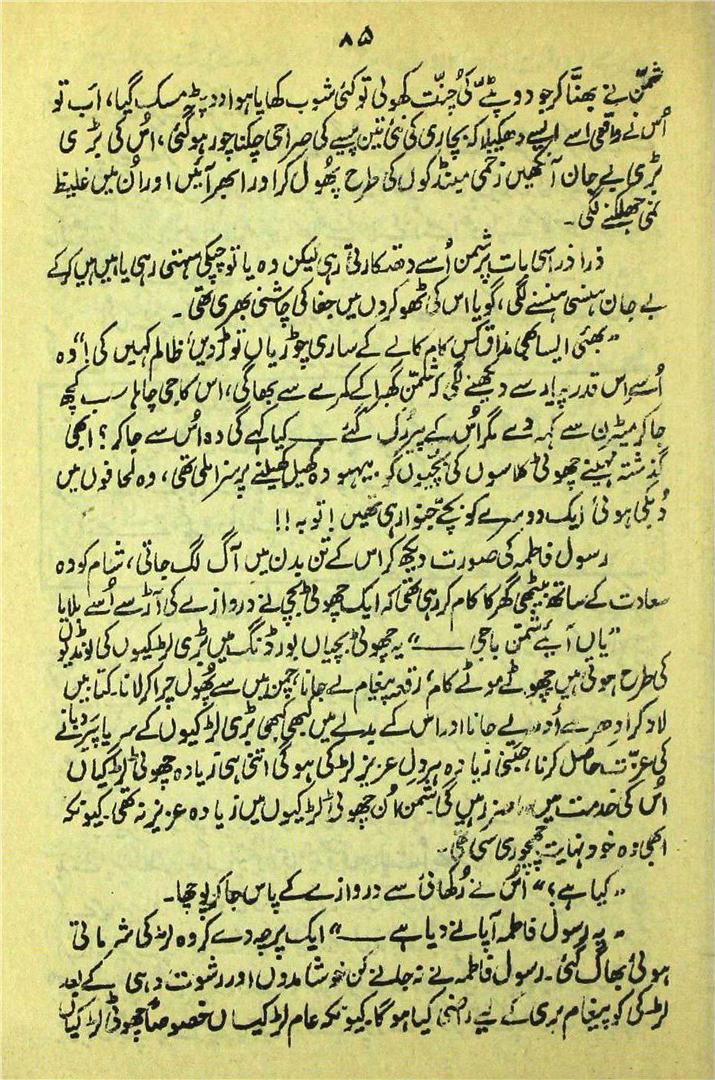 ۸۵
شمّن نے بھنّا کر جو دوپٹے کی چُنّٹ کھولی تو کئی شوب کھایا ہوا دوپٹہ مسک گیا، اب تو
اُس نے واقعی اسے ایسے دھکیلا کہ بچاری کی نئی تین پیسے کی صراحی چکنا چور ہوگئی، اُس کی بڑی
بڑی بے جان آنکھیں زخمی مینڈکوں کی طرح پھُول کر اور ابھر آئیں اور اُن میں غلیظ
نمی چھلکنے لگی۔
ذرا ذرا سی بات پر شمن اُسے دھتکارتی رہی لیکن وہ یا تو چپکی سہتی رہی یا ہیں ہیں کر کے
بے جان ہنسی ہنسنے لگی، گویا اس کی ٹھوکروں میں جفا کی چاشنی بھری تھی۔
"بھئی ایسا بھی مذاق کس کام کا لے کے ساری چوڑیاں توڑ دیں، ظالم کہیں کی!" وہ
اُسے اِس قدر پیار سے دیکھنے لگی کہ شمّن گھبرا کے کمرے سے بھاگی، اس کا جی چاہا سب کچھ
جا کر میٹرن سے کہہ دے مگر اُس کے پیر رُک گئے ــــ کیا کہے گی وہ اُس سے جا کر؟ ابھی
گذشتہ مہینے چھوٹی کلاسوں کی بچیوں کو بیہودہ کھیل کھیلنے پر سزا ملی تھی، وہ لحافوں میں
دُبکی ہوئی ایک دوسرے کو بچّے جنوا رہی تھیں! توبہ!!
رسول فاطمہ کی صورت دیکھ کر اس کے تن بدن میں آگ لگ جاتی، شام کو وہ
سعادت کے ساتھ بیٹھی گھر کا کام کر رہی تھی کہ ایک چھوٹی بچی نے دروازے کی آڑ سے اُسے بلایا
"یاں آیئے شمّن باجی ــــ" یہ چھوٹی بچیاں بورڈنگ میں بڑی لڑکیوں کی لونڈیوں
کی طرح ہوتی ہیں چھوٹے موٹے کام، رقعہ پیغام لے جانا، چمن میں سے پھُول چرا کر لانا۔ کتابیں
لاد کر اِدھر سے اُدھر لے جانا اور اس کے بدلے میں کبھی کبھی بڑی لڑکیوں کے سر یا پَیر دبانے
کی عزّت حاصل کرنا، جتنی زیادہ ہر دل عزیز لڑکی ہوگی اتنی ہی زیادہ چھوٹی لڑکیاں
اُس کی خدمت میں حاضر رہیں گی۔ شمّن اُن چھوٹی لڑکیوں میں زیادہ عزیز نہ تھی۔ کیونکہ
ابھی وہ خود نہایت چھچوری سی تھی۔
"کیا ہے؟" اُس نے رُکھائی سے دروازے کے پاس جا کر پوچھا۔
"یہ رسول فاطمہ آپا نے دیا ہے ــــ" ایک پرچہ دے کر وہ لڑکی شرماتی
ہوئی بھاگ گئی۔ رسول فاطمہ نے نہ جانے کن خوشامدوں اور رشوت دہی کے بعد
لڑکی کو پیغام بری کے لیے راضی کیا ہوگا۔ کیونکہ عام لڑکیاں خصوصاً چھوٹی لڑکیاں